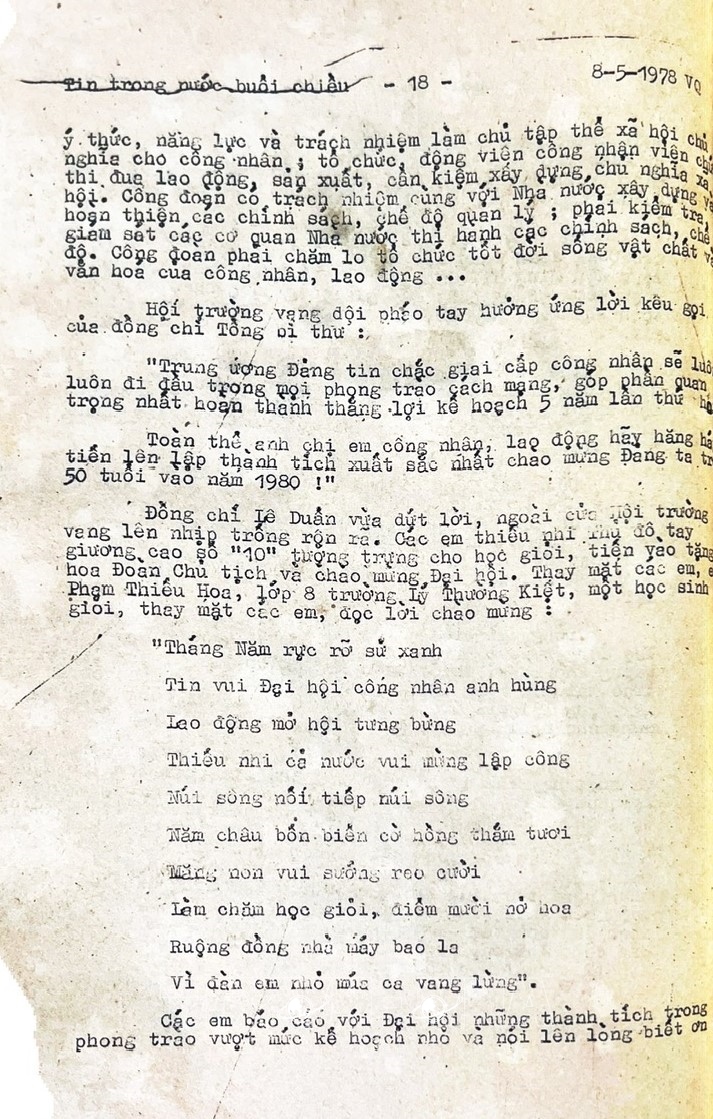 Tin trong nước buổi chiều - 18 - 8-5-1978 VQ
ý thức, năng lực và trách nhiệm làm chủ tập thể xã hội chủ
nghĩa cho công nhân ; tổ chức, động viên công nhân viên chức
thi đua lao động, sản xuất, cần kiệm xây dựng chủ nghĩa xã
hội. Công đoàn có trách nhiệm cùng với Nhà nước xây dựng và
hoàn thiện các chính sách, chế độ quản lý ; phải kiểm tra,
giám sát các cơ quan Nhà nước thi hành các chính sách, chế
độ. Công đoàn phải chăm lo tổ chức tốt đời sống vật chất và
văn hóa của công nhân, lao động ...
Hội trường vang dội pháo tay hưởng ứng lời kêu gọi
của đồng chí Tổng bí thư :
"Trung ương Đảng tin chắc giai cấp công nhân sẽ luôn
luôn đi đầu trong mọi phong trào cách mạng, góp phần quan
trọng nhất hoàn thành thắng lợi kế hoạch 5 năm lần thứ
Toàn thể anh chị em công nhân, lao động hãy hăng hái
tiến lên lập thành tích xuất sắc nhất chào mừng Đảng ta
50 tuổi vào năm 1980 !"
Đồng chí Lê Duẩn vừa dứt lời, ngoài cửa Hội trường
vang lên nhịp trống rộn rã. Các em thiếu nhi Thủ đô tay
giương cao số "10" tượng trưng cho học giỏi, tiến vào tặng
hoa Đoàn Chủ tịch và chào mừng Đại hội. Thay mặt các em,
Phạm Thiều Hoa, lớp 8 trường Lý Thường Kiệt, một học sinh
giỏi, thay mặt các em, đọc lời chào mừng :
"Tháng Năm rực rỡ sử xanh
Tin vui Đại hội công nhân anh hùng
Lao động mở hội tưng bừng
Thiếu nhi cả nước vui mừng lập công
Núi sông nối tiếp núi sông
Năm châu bốn biển cờ hồng thắm tươi
Măng non vui sướng reo cười
Làm chăm học giỏi, điểm mười nở hoa
Ruộng đồng nhà máy bao la
Vì đàn em nhỏ múa ca vang lừng".
Các em báo cáo với Đại hội những thành tích trong
phong trào vượt mức kế hoạch nhỏ và nói lên lòng biết ơn